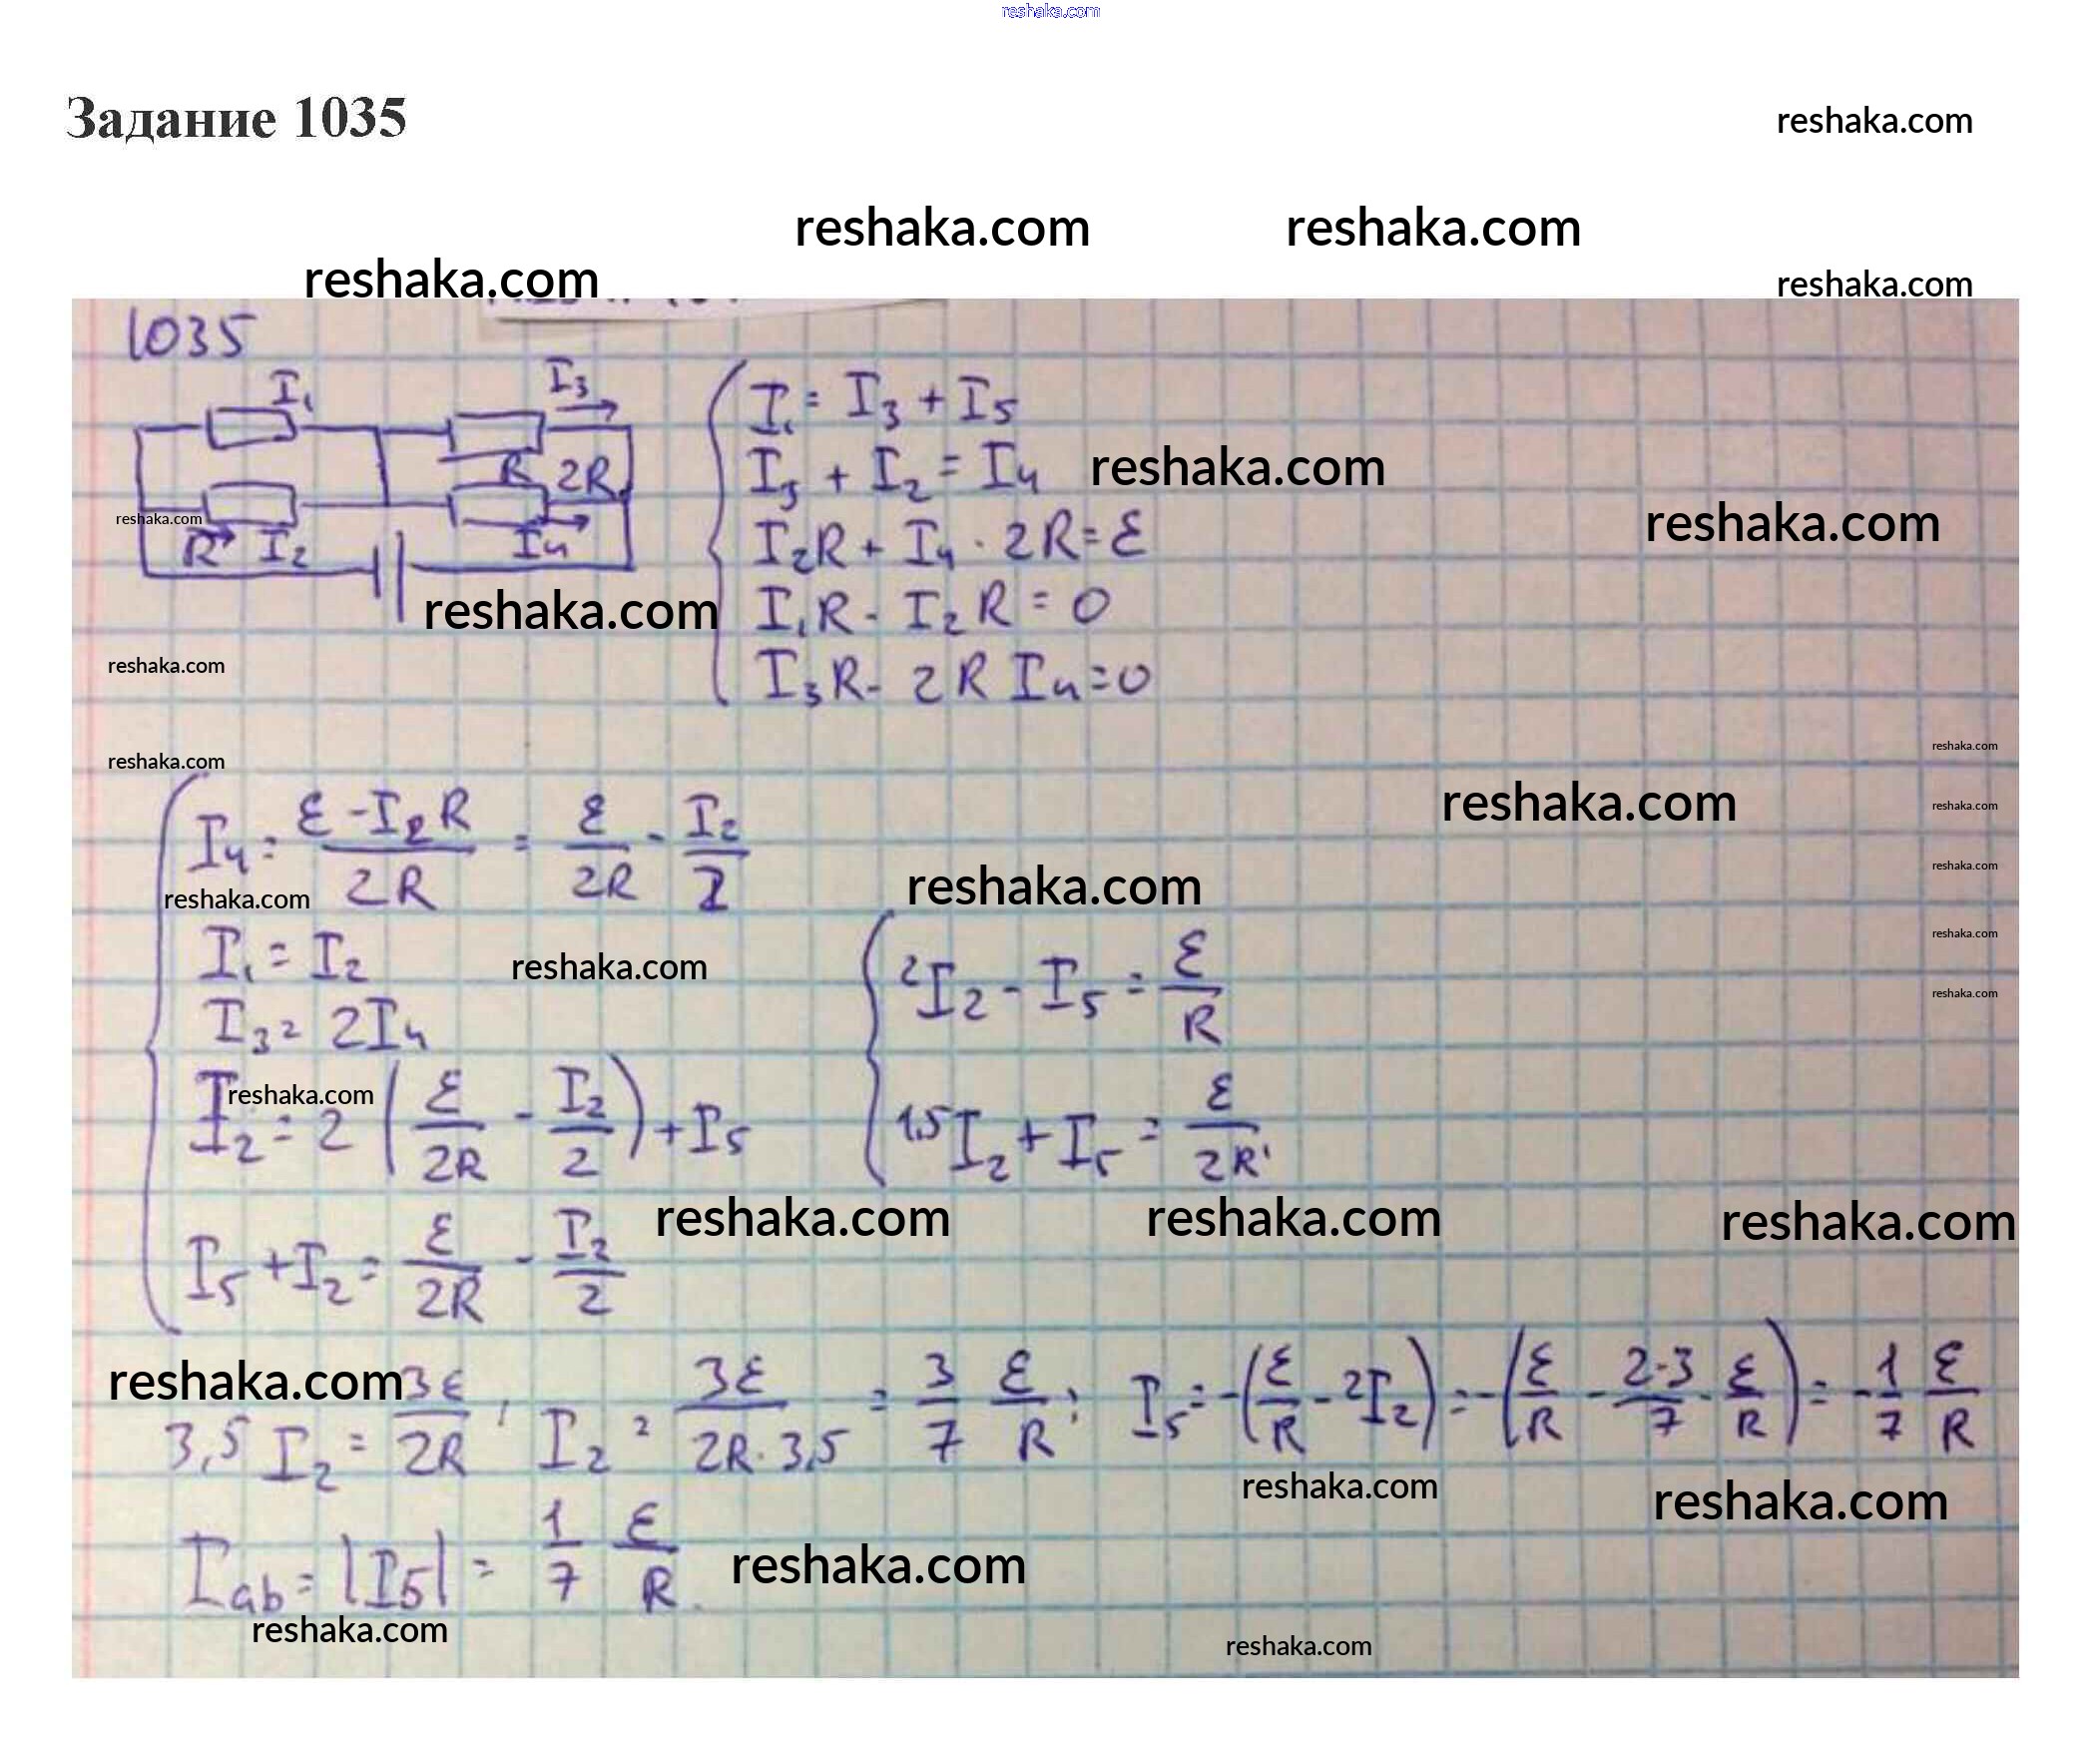 reshaka.com
Задание 1035
reshaka.com
reshaka.com reshaka.com
reshaka.com
reshaka.com
1035
I₁ I₃
R 2R
R I₂ I₄
I₁ = I₃ + I₅
I₃ + I₂ = I₄
I₂R + I₄ · 2R = ℰ
I₁R - I₂R = 0
I₃R - 2R I₄ = 0
reshaka.com
reshaka.com
reshaka.com
reshaka.com
reshaka.com
reshaka.com
reshaka.com
reshaka.com
reshaka.com
reshaka.com
reshaka.com
reshaka.com
I₄ = (ℰ - I₂R)/2R = ℰ/2R - I₂/2
reshaka.com
reshaka.com
I₁ = I₂
reshaka.com
I₃ = 2I₄
I₂ = 2 (ℰ/2R - I₂/2) + I₅
reshaka.com
I₅ + I₂ = ℰ/2R - I₂/2
2I₂ - I₅ = ℰ/R
1,5 I₂ + I₅ = ℰ/2R
reshaka.com reshaka.com reshaka.com
reshaka.com
3,5 I₂ = 3ℰ/2R ; I₂ = 3ℰ/(2R · 3,5) = 3/7 ℰ/R ; I₅ = -(ℰ/R - 2I₂) = -(ℰ/R - 2·3/7 · ℰ/R) = -1/7 ℰ/R
reshaka.com
reshaka.com
Iab = |I₅| = 1/7 ℰ/R.
reshaka.com
reshaka.com
reshaka.com